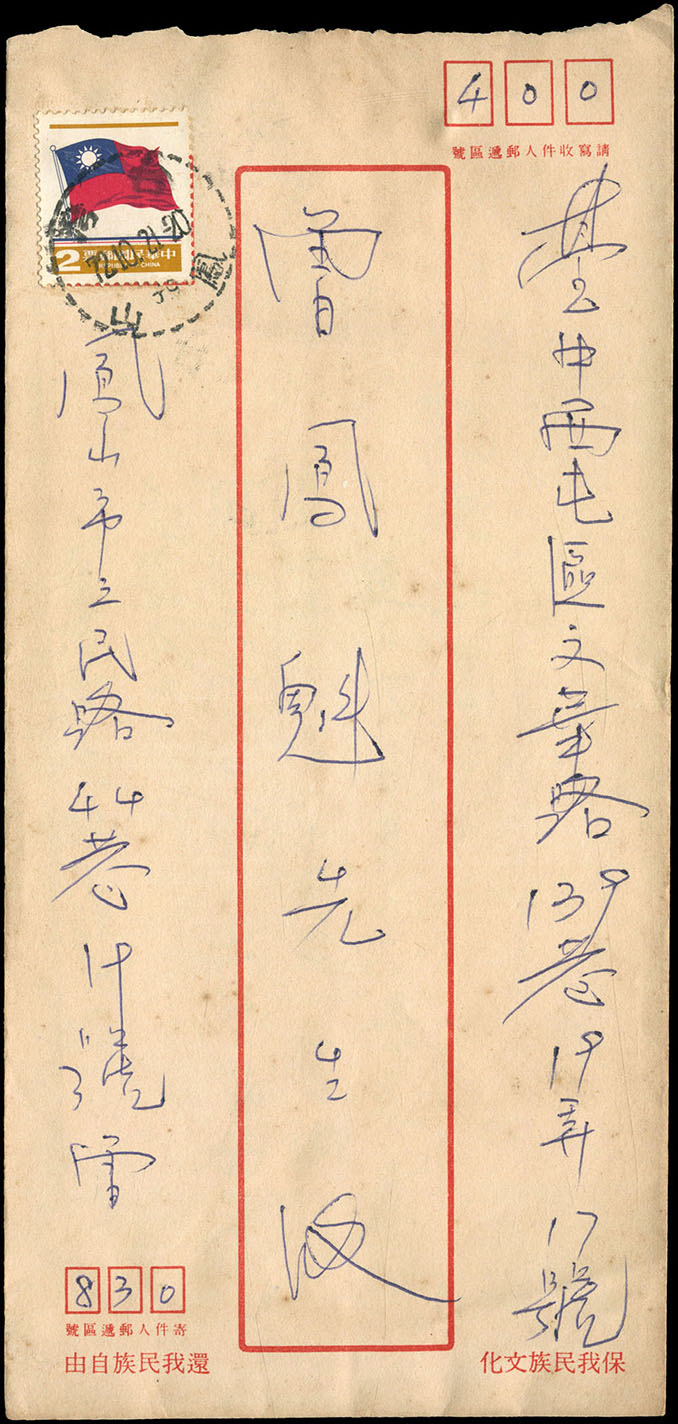 400
請寫收件人郵遞區號
臺中西屯區文華路139巷19弄17號
保我民族文化
曾鳳魁先生收
中華民國郵票
REPUBLIC OF CHINA
2
鳳山
72.10.21.20
鳳山市三民路44巷14號曾
830
寄件人郵遞區號
還我民族自由